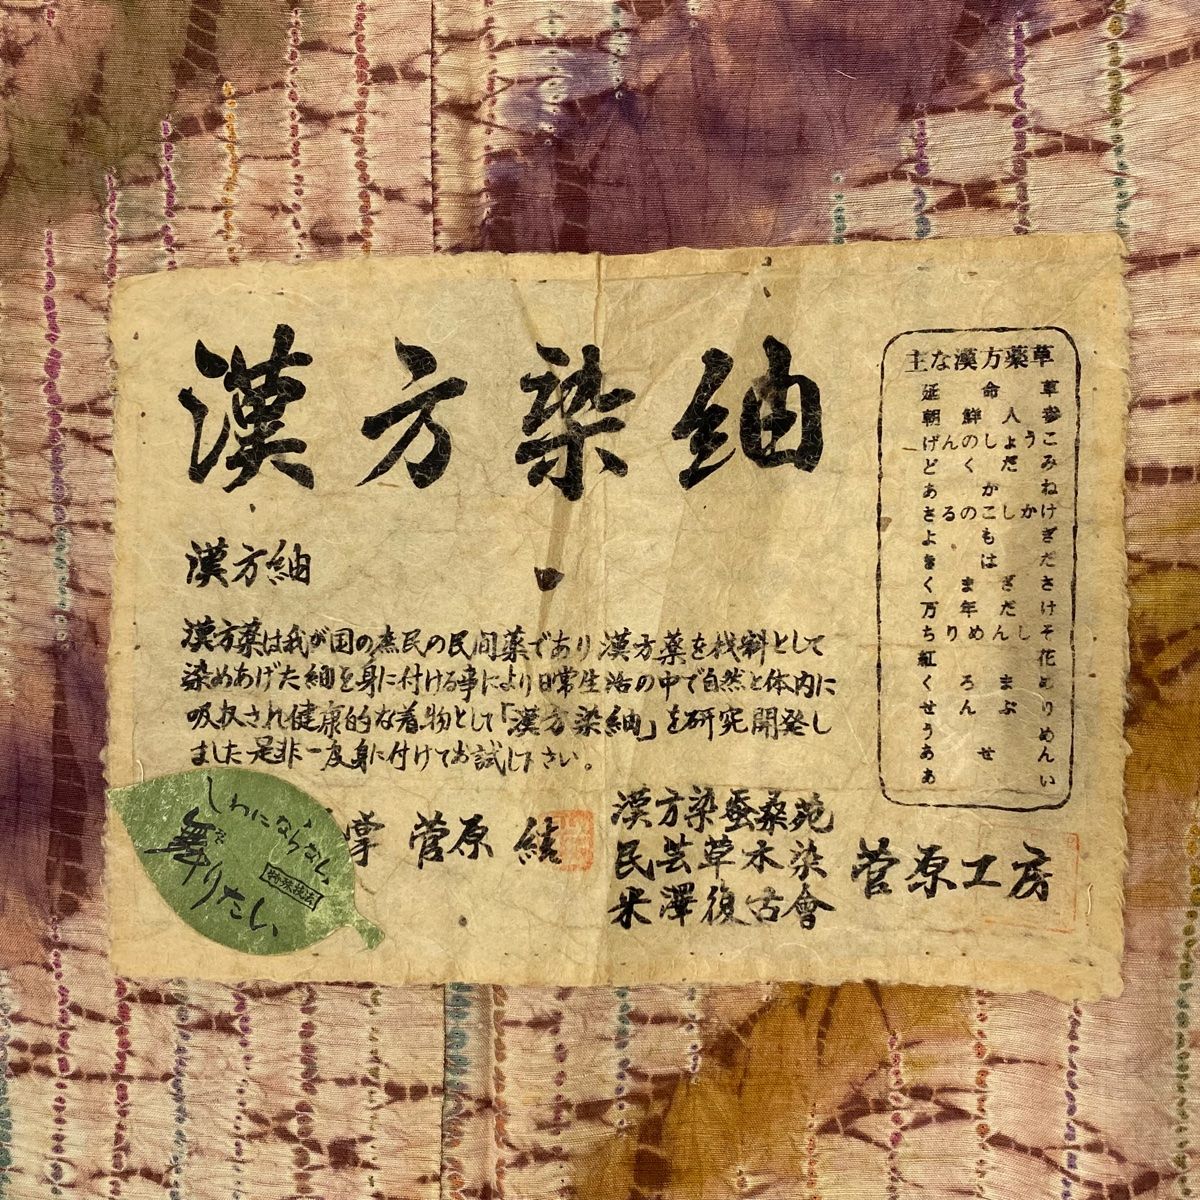 漢方染紬
漢方紬
漢方薬は我が国の庶民の民間薬であり漢方薬を材料として
染めあげた紬を身に付ける事により日常生活の中で自然と体内に
吸収され健康的な着物として「漢方染紬」を研究開発し
ました是非一度身に付けてお試し下さい。
掌 菅原 結
漢方染蚕桑苑
民芸草木染
米澤復古會
菅原工房
主な漢方薬草
延命草
朝鮮人参
げんのしょうこ
どくだみ
あかね
さるのこしかけ
よもぎ
きはだ
くまざさ
万年だけ
ちりめんしそ
紅花
くろまめ
せんぶり
うめ
あせん
あい
しわにならない
特殊技法